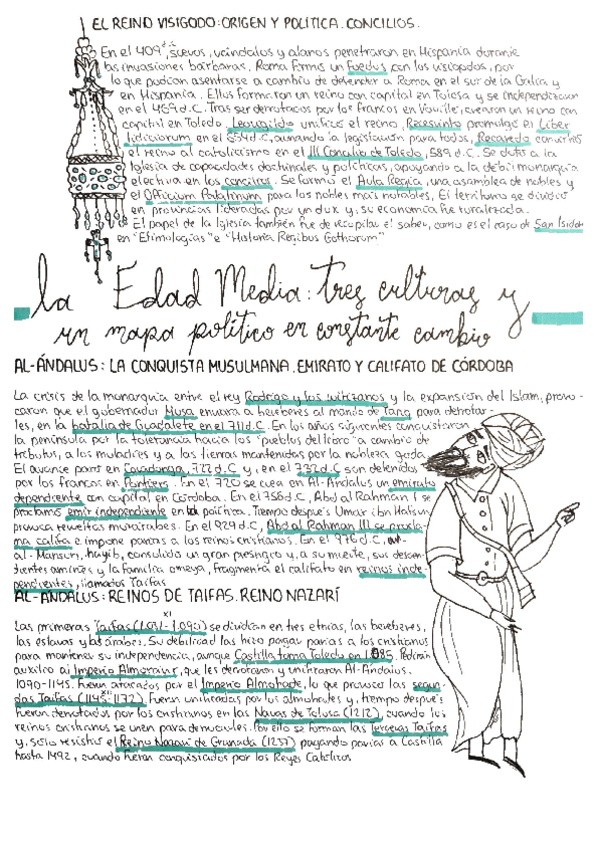 EL REINO VISIGODO: ORIGEN Y POLÍTICA. CONCILIOS.
En el 409 d.C, suevos, vándalos y alanos penetraron en Hispania durante
las invasiones bárbaras. Roma firmó un Foedus con los visigodos, por
lo que podían asentarse a cambio de defender a Roma en el sur de la Galia y
en Hispania. Ellos formaron un reino con capital en Tolosa y se independizaron
en el 469 d.C. Tras ser derrotados por los francos en Vouillé, crearon un reino con
capital en Toledo. Leovigildo unificó el reino, Recesvinto promulgó el Liber
Iudiciorum en el 654 d.C, aunando la legislación para todos, Recaredo convirtió
el reino al catolicismo en el III Concilio de Toledo, 589 d.C. Se dotó a la
Iglesia de capacidades doctrinales y políticas, apoyando a la débil monarquía
electiva en los concilios. Se formó el Aula Regia, una asamblea de nobles y
el Officium Palatinum para los nobles más notables. El territorio se dividió
en provincias lideradas por un dux y, su economía fue ruralizada.
El papel de la Iglesia también fue de recopilar el saber, como es el caso de San Isidoro
en "Etimologías" e "Historia Regibus Gothorum"
La Edad Media: tres culturas y
un mapa político en constante cambio
AL-ÁNDALUS: LA CONQUISTA MUSULMANA. EMIRATO Y CALIFATO DE CÓRDOBA
La crisis de la monarquía entre el rey Rodrigo y los witizanos y la expansión del Islam, provo-
caron que el gobernador Musa enviara a bereberes al mando de Tariq para derrotar-
les, en la batalla de Guadalete en el 711 d.C. En los años siguientes conquistaron
la península por la tolerancia hacia los "pueblos del libro" a cambio de
tributos, a los muladíes y a las tierras mantenidas por la nobleza goda.
El avance paró en Covadonga, 722 d.C y, en el 732 d.C son detenidos
por los francos en Poitiers. En el 720 se crea en Al-Ándalus un emirato
dependiente con capital en Córdoba. En el 756 d.C, Abd al Rahman I se
proclama emir independiente en la política. Tiempo después Umar ibn Hafsun
provoca revueltas mozárabes. En el 929 d.C, Abd al Rahman III se procla-
ma califa e impone parias a los reinos cristianos. En el 976 d.C,
al-Mansur, hayib, consolida un gran prestigio y, a su muerte, sus descen-
dientes amiríes y la familia omeya, fragmenta el califato en reinos inde-
pendientes, llamados Taifas
AL-ÁNDALUS: REINOS DE TAIFAS. REINO NAZARÍ
XI
Las primeras Taifas (1031-1090) se dividían en tres etnias, las bereberes,
las eslavas y las árabes. Su debilidad las hizo pagar parias a los cristianos
para mantener su independencia, aunque Castilla toma Toledo en 1085. Pedirán
auxilio al Imperio Almorávide, que les derrotaron y unificaron Al-Ándalus.
1090-1145. Fueron atacados por el Imperio Almohade, lo que provoca las segun-
XII
das Taifas (1145-1172) Fueron unificadas por los almohades y, tiempo después
fueron derrotados por los cristianos en las Navas de Tolosa (1212), cuando los
reinos cristianos se unen para derrotarles. Por ello se forman las terceras Taifas
y, sólo resistió el Reino Nazarí de Granada (1237) pagando parias a Castilla
hasta 1492, cuando fueron conquistados por los Reyes Católicos